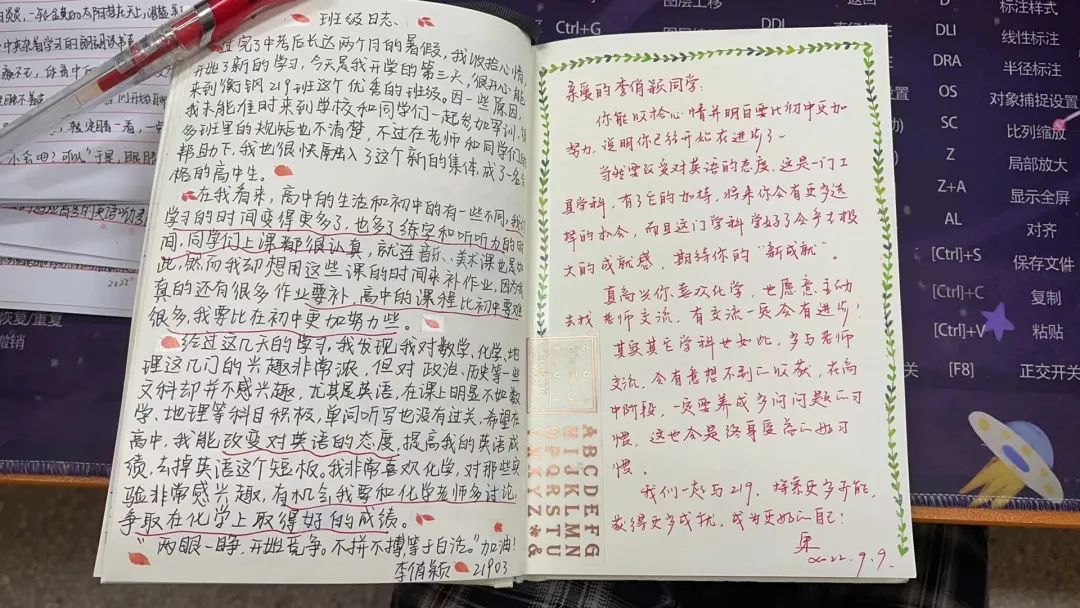 班级日志
过完了中考后长达两个月的暑假,我收拾心情,
开始了新的学习,今天是我开学的第三天,很开心能
来到衡钢219班这个优秀的班级。因一些原因,
我未能准时来到学校和同学们一起参加军训,很
多班里的规矩也不清楚,不过在老师和同学们的
帮助下,我也很快融入了这个新的集体,成了一名合
格的高中生。
在我看来,高中的生活和初中的有一些不同,我们
学习的时间变得更多了,也多了练字和听听力的时
间,同学们上课都很认真,就连音乐、美术课也是如
此,然而我却想用这些课的时间来补作业,因为我
真的还有很多作业要补,高中的课程比初中要难
很多,我要比在初中更加努力些。
经过这几天的学习,我发现我对数学、化学、地
理这几门的兴趣非常浓,但对政治、历史等一些
文科却并不感兴趣,尤其是英语,在课上明显不如数
学、地理等科目积极,单词听写也没有过关,希望在
高中,我能改变对英语的态度,提高我的英语成
绩,去掉英语这个短板。我非常喜欢化学,对那些实
验非常感兴趣,有机会我要和化学老师多讨论,
争取在化学上取得好的成绩。
“两眼一睁,开始竞争。不拼不搏等于白活。”加油!
李俏颖 21903
亲爱的李俏颖同学:
你能收拾心情并明白要比初中更加
努力,说明你已经开始在进步了~
当然要改变对英语的态度,这是一门工
具学科,有了它的加持,将来你会有更多选
择的机会,而且这门学科学好了会有极
大的成就感,期待你的“新成就”。
真高兴你喜欢化学,也愿意主动
去找老师交流,有交流一定会有进步!
其实其它学科也如此,多与老师
交流,会有意想不到的收获,在高
中阶段,一定要养成多问问题的习
惯,这也会是终身受益的好习
惯。
我们一起与219,探索更多可能,
获得更多成长,成为更好的自己!
2022.9.9.
ABCDEFG
HIJKLMN
OPQRSTU
VWXYZ*&
Ctrl+G
DDL
DLI
DRA
OS
SC
Z
Z+A
AL
[Ctrl]+S
[Ctrl]+C
[Ctrl]+V
[F8]
标注样式
线性标注
半径标注
对象捕捉设置
比例缩放
局部放大
显示全屏
对齐
保存文件
复制
粘贴
正交开关
恢复/重复
撤销